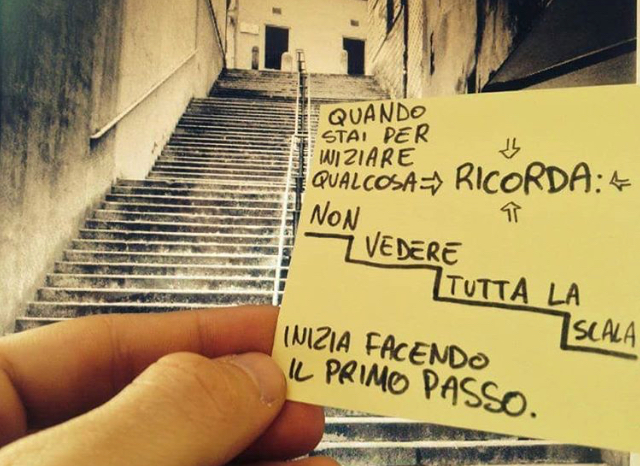 QUANDO
STAI PER
INIZIARE
QUALCOSA⇒ RICORDA:
NON
VEDERE
TUTTA LA
SCALA
INIZIA FACENDO
IL PRIMO PASSO.